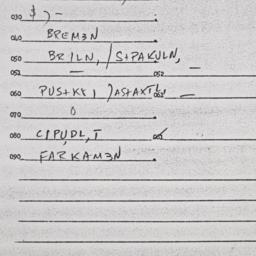 030 $ ) -
040 BREM3N
050 BRILN, /S+PAKULN,
052 — 052 —
060 PUS+KE, )AS+AXT 062 —
070 0
080 CIPUDL, T
090 FARKAM3N